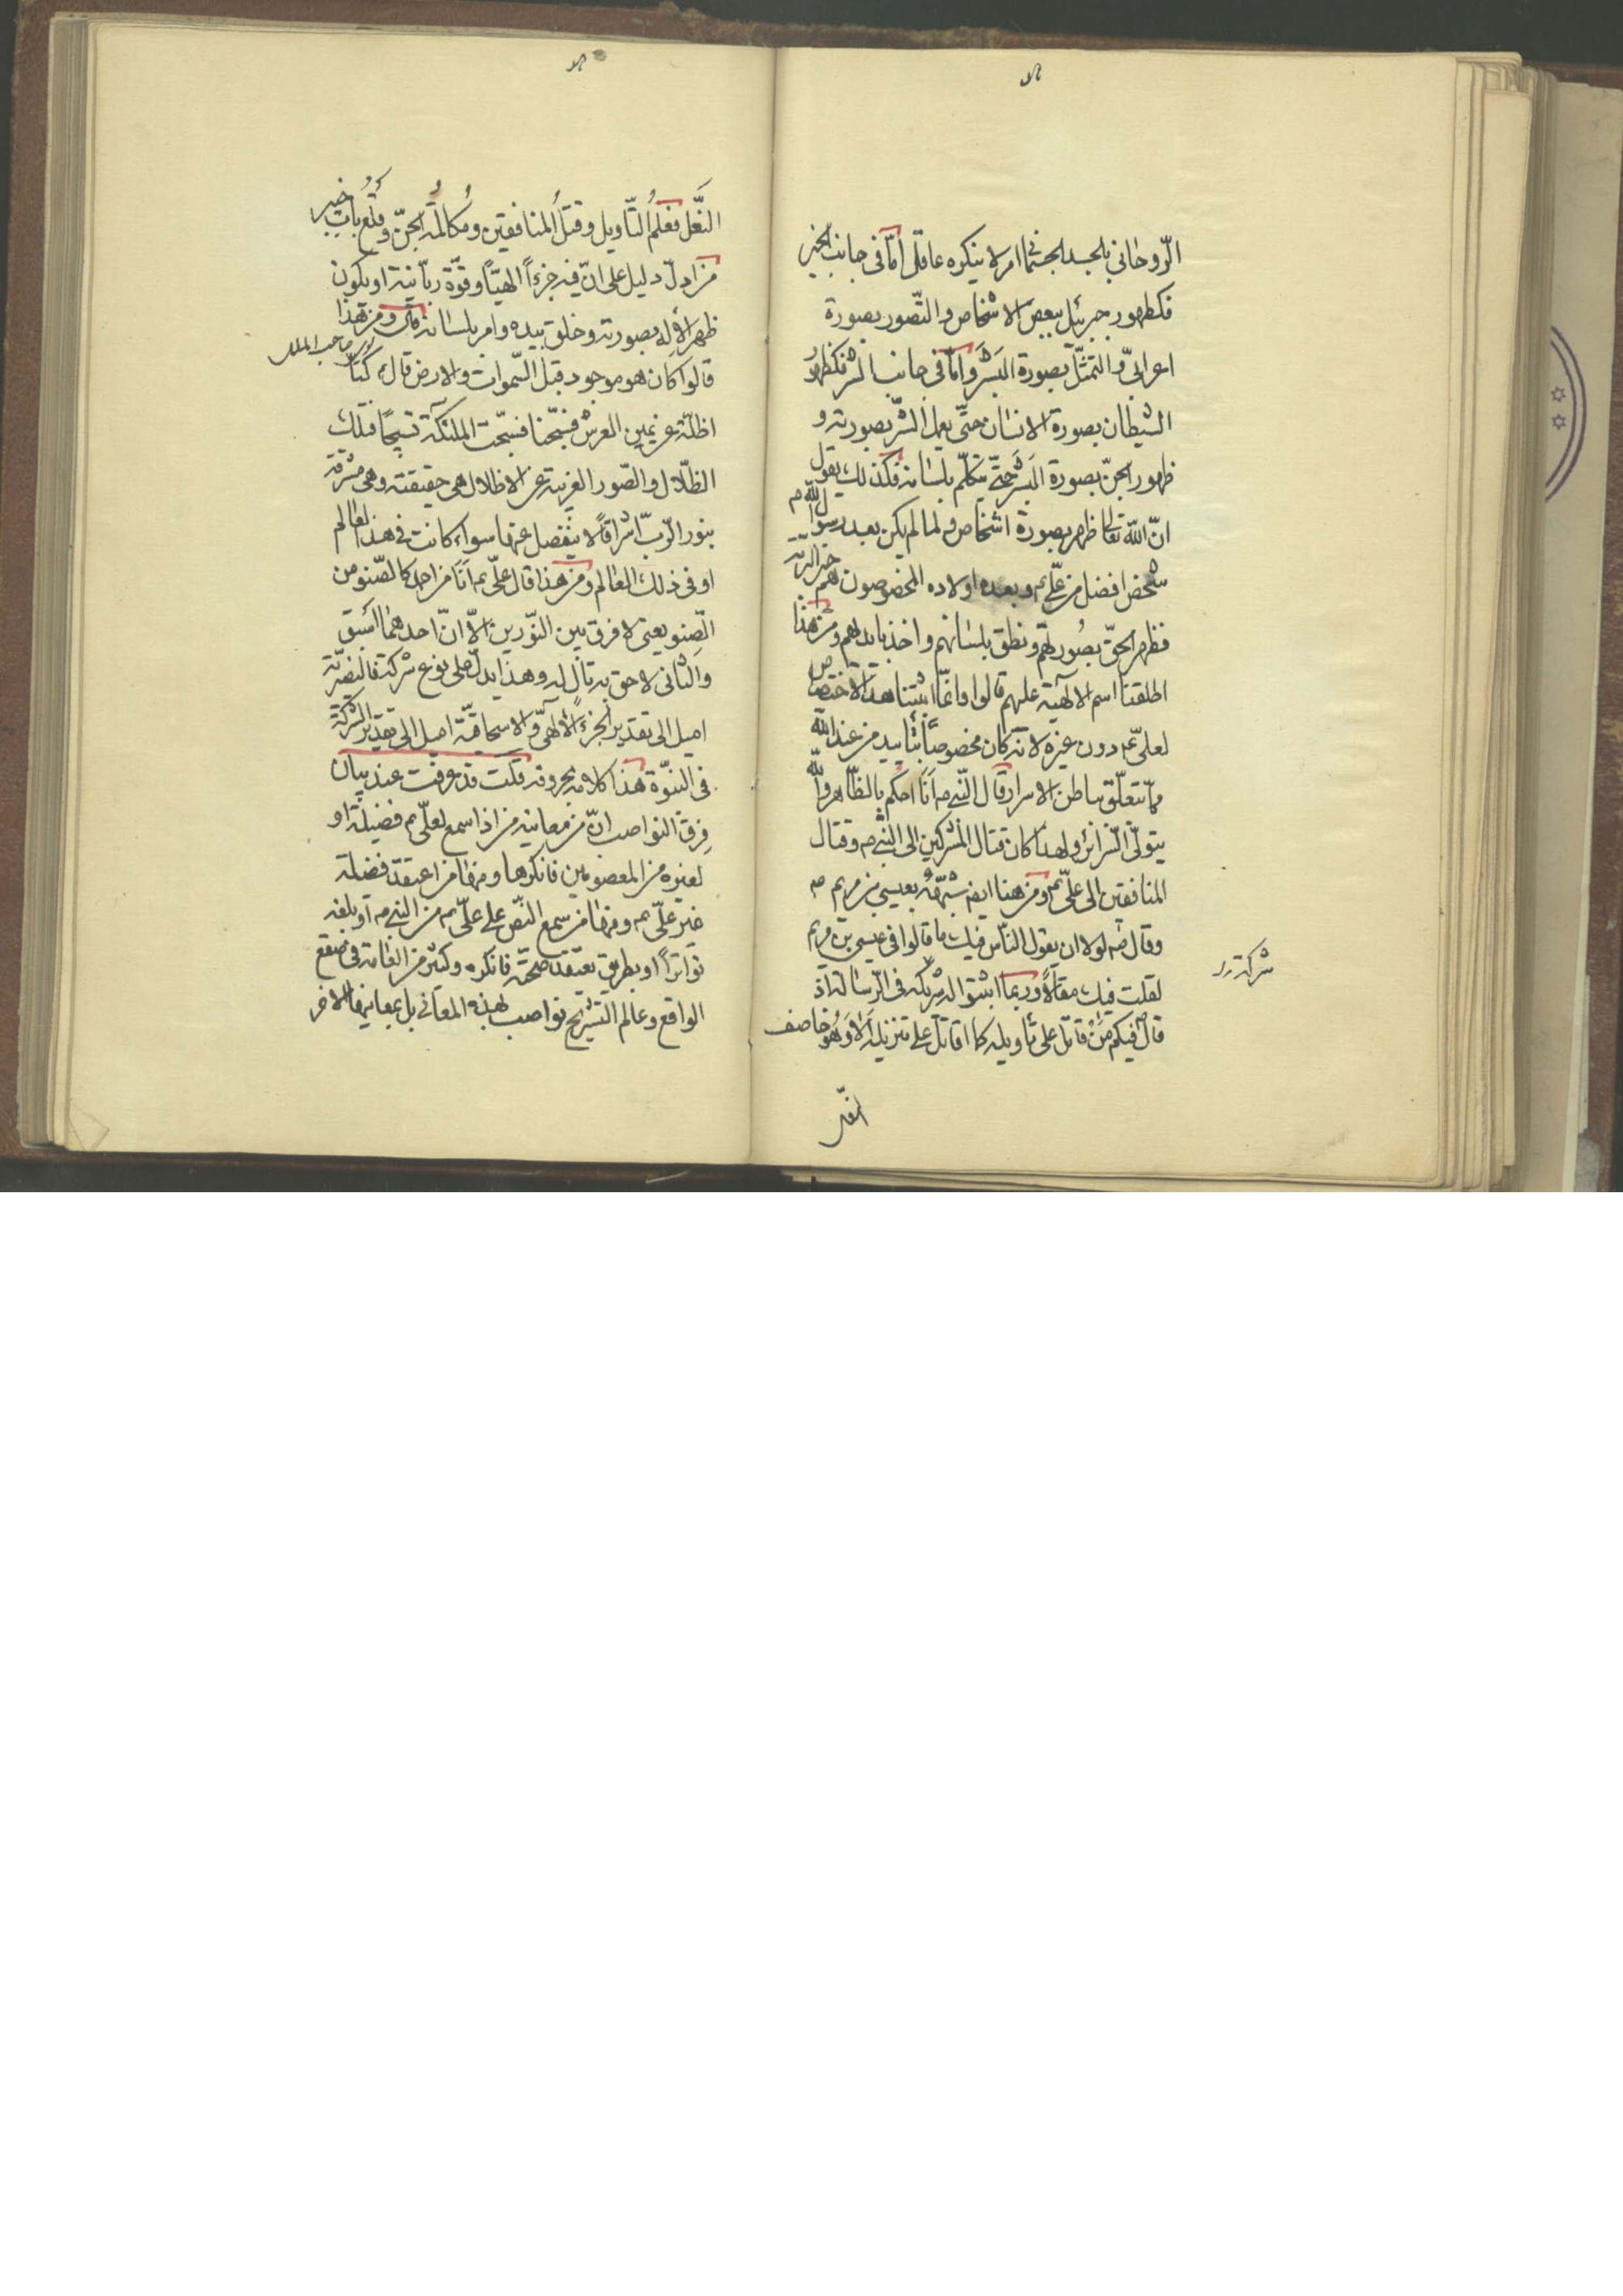 الرّوحاني بالجسد الجثماني امر لا ينكره عاقل امّا في جانب الخير
فكظهور جبرئيل ببعض الاشخاص والتّصور بصورة
اعرابيّ والتمثّل بصورة البَشَر وامّا في جانب الشر فكظهور
الشيطان بصورة الانسان حتّى يعمل الشّر بصورته و
ظهور الجنّ بصورة البَشَر حتّى يتكلّم بلسانه فكذلك يقول
انّ الله تعالى ظهر بصورة اشخاص ولما لم يكن بعد رسول الله ص
شخص افضل من عليّ ع وبعده اولاده المخصوصون هم خير البريّة
فظهر الحقّ بصُورتهم ونطق بلسانهم واخذ بايديهم ومن هذا
اطلقنا اسم الالهيّة عليهم قالوا وانمّا اثبتنا هذا الاختصاص
لعليّ ع دون غيره لانّه كان مخصوصًا بتأييد من عند الله
ممّا يتعلّق بباطن الاسرار قال النّبي ص اَنَا احكم بالظّاهر والله
يتولّى السّرائر ولهذا كان قتال المشركين الى النبي ص وقتال
المنافقين الى عليّ ع ومن هنا ايضا شبّهه بعيسى بن مريم ص
وقال ص لولا ان يقول النّاس فيك ما قالوا في عيسى بن مريم
لقلت فيك مقالًا وربما اثبتوا له شركة في الرّسالة اذ
قال فيكم مَن قاتل على تأويله كما اقاتل على تنزيله الا وهُو خاصف
النعل
شركة
النَّعل فعلمُ التّأويل وقتلُ المنافقين ومُكالمةُ الجنّ وقلعُ باب خيبر
من ادلّ دليل على انّ فيه جزءًا الهيّاً وقوّة ربّانيّة او يكون
ظهر الاله بصورته وخلق بيده وامر بلسانه ومن هذا
صاحب الملل
قالوا كان هو موجود قبل السّموات والارض قال كنّا
اظلّة عن يمين العرش فسبّحنا فسبّحت الملئكة تسبيحنا فتلك
الظّلال والصّور الغريبة عن الاظلال هي حقيقته وهي مشرقة
بنور الرّبّ اشراقاً لا ينفصل عنها سواء كانت في هذا العالم
او في ذلك العالم ومن هذا قال عليّ ع اَنَا من احمد كالصّنو من
الصّنو يعني لا فرق بين النّورين الاّ انّ احدهما اسبق
والثاني لاحق به تالٍ له وهذا يدلّ على نوع شركة فالنصيريّة
اميل الى تقدير الجزء الالهيّ والاسحاقيّة اميل الى تقدير الشركة
في النبوّة هذا كلامه بحروفه قلت قد عرفت عند بيان
فِرق النواصب انّ من معانيه من اذا سمع لعليّ ع فضيلة او
لغيره من المعصومين فانكرها ومنها من اعتقد فضيلة
غير عليّ ع ومنها من سمع النّصّ على عليّ ع من النبي ص او بلغه
تواتراً او بطريق يعتقد صحّته فانكره وكثير من العامة في صقع
الواقع وعالم التشريح نواصب لهذه المعاني بل بمعانيها الاخر